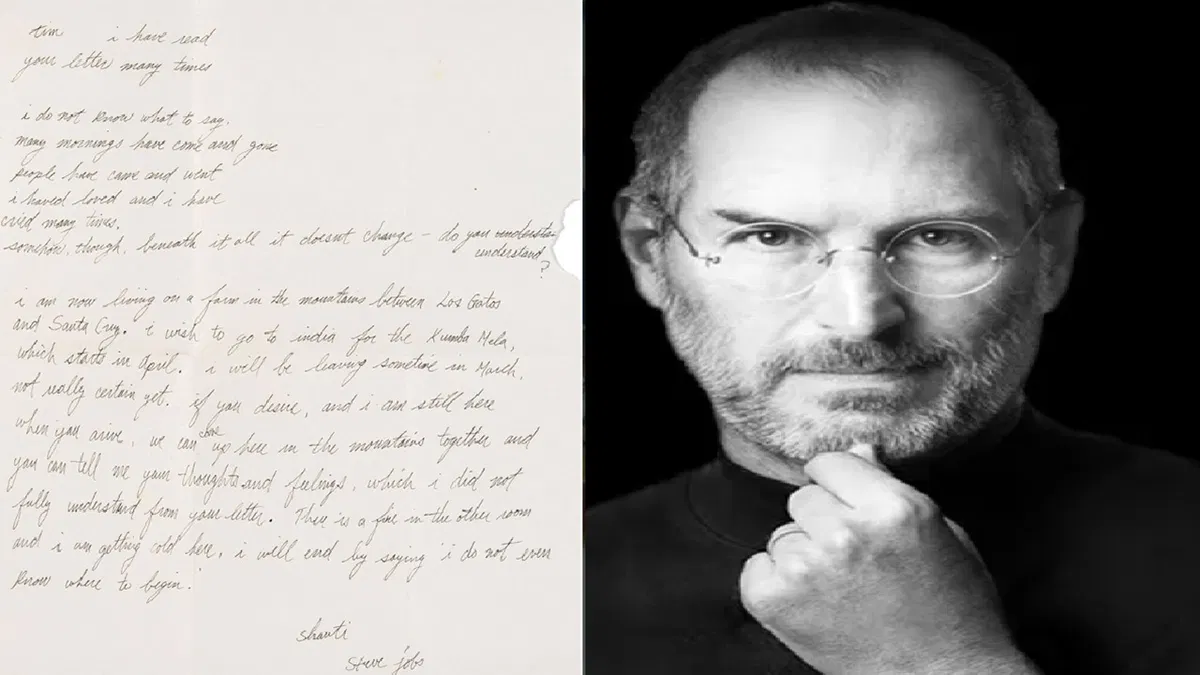 tim i have read
your letter many times
i do not know what to say.
many mornings have come and gone
people have came and went
i haved loved and i have
cried many times.
somehow, though, beneath it all it doesn't change - do you understa
understand
?
i am now living on a farm in the mountains between Los Gatos
and Santa Cruz. i wish to go to india for the Kumba Mela,
which starts in April. i will be leaving sometime in March,
not really certain yet. if you desire, and i am still here
when you arive, we can come up here in the mountains together and
you can tell me your thoughts and feelings, which i did not
fully understand from your letter. There is a fire in the other room
and i am getting cold here. i will end by saying 'i do not even
know where to begin.'
shanti
steve jobs